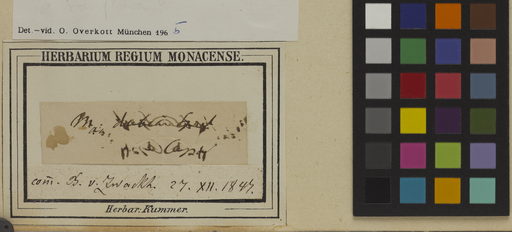 Det.-vid. O. Overkott München 196 5
HERBARIUM REGIUM MONACENSE.
com. B. v. Zwackh. 27. XII. 1847.
Herbar. Kummer.